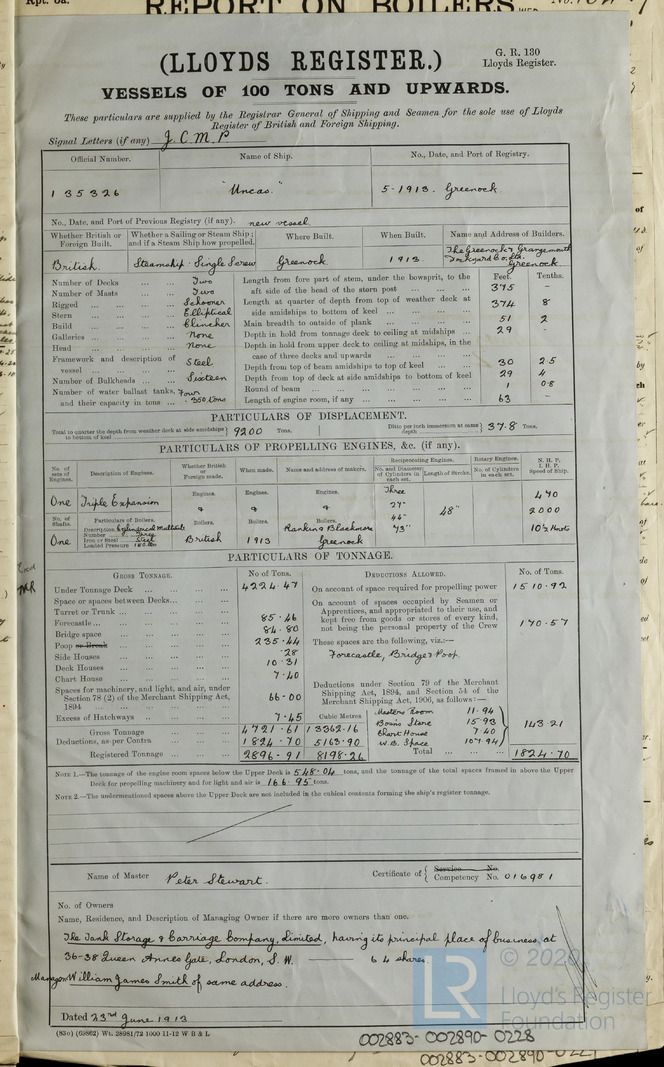 Rpt. 8a.
REPORT ON BOILERS
(LLOYDS REGISTER.)
G. R. 130
Lloyds Register.
VESSELS OF 100 TONS AND UPWARDS.
These particulars are supplied by the Registrar General of Shipping and Seamen for the sole use of Lloyds
Register of British and Foreign Shipping.
Signal Letters (if any) J.C.M.P
Official Number. Name of Ship. No., Date, and Port of Registry.
135326 "Uncas." 5-1913. Greenock
No., Date, and Port of Previous Registry (if any). new vessel
Whether British or Foreign Built. Whether a Sailing or Steam Ship; and if a Steam Ship how propelled. Where Built. When Built. Name and Address of Builders.
British. Steamship. Single Screw Greenock. 1913 The Greenock & Grangemouth Dockyard Co. Ltd. Greenock
Feet. Tenths.
Number of Decks ... ... Two
Number of Masts ... ... Two
Rigged ... ... ... Schooner
Stern ... ... ... Elliptical
Build ... ... ... Clincher
Galleries ... ... ... None
Head ... ... ... None
Framework and description of vessel ... ... ... Steel
Number of Bulkheads ... ... Sixteen
Number of water ballast tanks, Four
and their capacity in tons ... 350 tons
Length from fore part of stem, under the bowsprit, to the aft side of the head of the stern post 375 -
Length at quarter of depth from top of weather deck at side amidships to bottom of keel 374 8
Main breadth to outside of plank 51 2
Depth in hold from tonnage deck to ceiling at midships 29 -
Depth in hold from upper deck to ceiling at midships, in the case of three decks and upwards
Depth from top of beam amidships to top of keel 30 25
Depth from top of deck at side amidships to bottom of keel 29 4
Round of beam 1 08
Length of engine room, if any 63 -
PARTICULARS OF DISPLACEMENT.
Total to quarter the depth from weather deck at side amidships to bottom of keel 9200 Tons. Ditto per inch immersion at same depth 37.8 Tons.
PARTICULARS OF PROPELLING ENGINES, &c. (if any).
No. of sets of Engines. Description of Engines. Whether British or Foreign made. When made. Name and address of makers. Reciprocating Engines. Rotary Engines. N. H. P.
I. H. P.
Speed of Ship.
No. and Diameter of Cylinders in each set. Length of Stroke. No. of Cylinders in each set.
One Triple Expansion Engines. Engines. Engines. Three 27" 44" 73" 48" 470
2000
10½ Knots
No. of Shafts. Particulars of Boilers. Boilers. Boilers. Boilers.
One Description Cylindrical Multitub
Number Three
Iron or Steel Steel
Loaded Pressure 180 lbs British 1913 Rankin & Blackmore Greenock
PARTICULARS OF TONNAGE.
GROSS TONNAGE. No of Tons. DEDUCTIONS ALLOWED. No. of Tons.
Under Tonnage Deck 4224.47
Space or spaces between Decks
Turret or Trunk
Forecastle 85.46
Bridge space 84.80
Poop or Break 235.44
Side Houses .28
Deck Houses 10.31
Chart House 7.40
Spaces for machinery, and light, and air, under Section 78 (2) of the Merchant Shipping Act, 1894 66.00
Excess of Hatchways 7.45 Cubic Metres
Gross Tonnage 4721.61 13362.16
Deductions, as per Contra 1824.70 5163.90
Registered Tonnage 2896.91 8198.26
On account of space required for propelling power 1510.92
On account of spaces occupied by Seamen or Apprentices, and appropriated to their use, and kept free from goods or stores of every kind, not being the personal property of the Crew 170.57
These spaces are the following, viz.:—
Forecastle, Bridge & Poop.
Deductions under Section 79 of the Merchant Shipping Act, 1894, and Section 54 of the Merchant Shipping Act, 1906, as follows:—
Masters Room 11.94
Bosns Store 15.93
Chart House 7.40
W.B. Space 107.94
143.21
Total 1824.70
NOTE 1.—The tonnage of the engine room spaces below the Upper Deck is 548.04 tons, and the tonnage of the total spaces framed in above the Upper
Deck for propelling machinery and for light and air is 166.95 tons.
NOTE 2.—The undermentioned spaces above the Upper Deck are not included in the cubical contents forming the ship's register tonnage.
Name of Master Peter Stewart. Certificate of Service No.
Competency No. 016981
No. of Owners
Name, Residence, and Description of Managing Owner if there are more owners than one.
The Tank Storage & Carriage Company, Limited, having its principal place of business at
36-38 Queen Annes Gate, London, S.W. —— 64 shares.
Manager William James Smith of same address.
Dated 23rd June 1913
(85o) (69862) Wt. 28981/72 1000 11-12 W B & L
© 2020
LR
Lloyd's Register
Foundation
002883-002890-0228